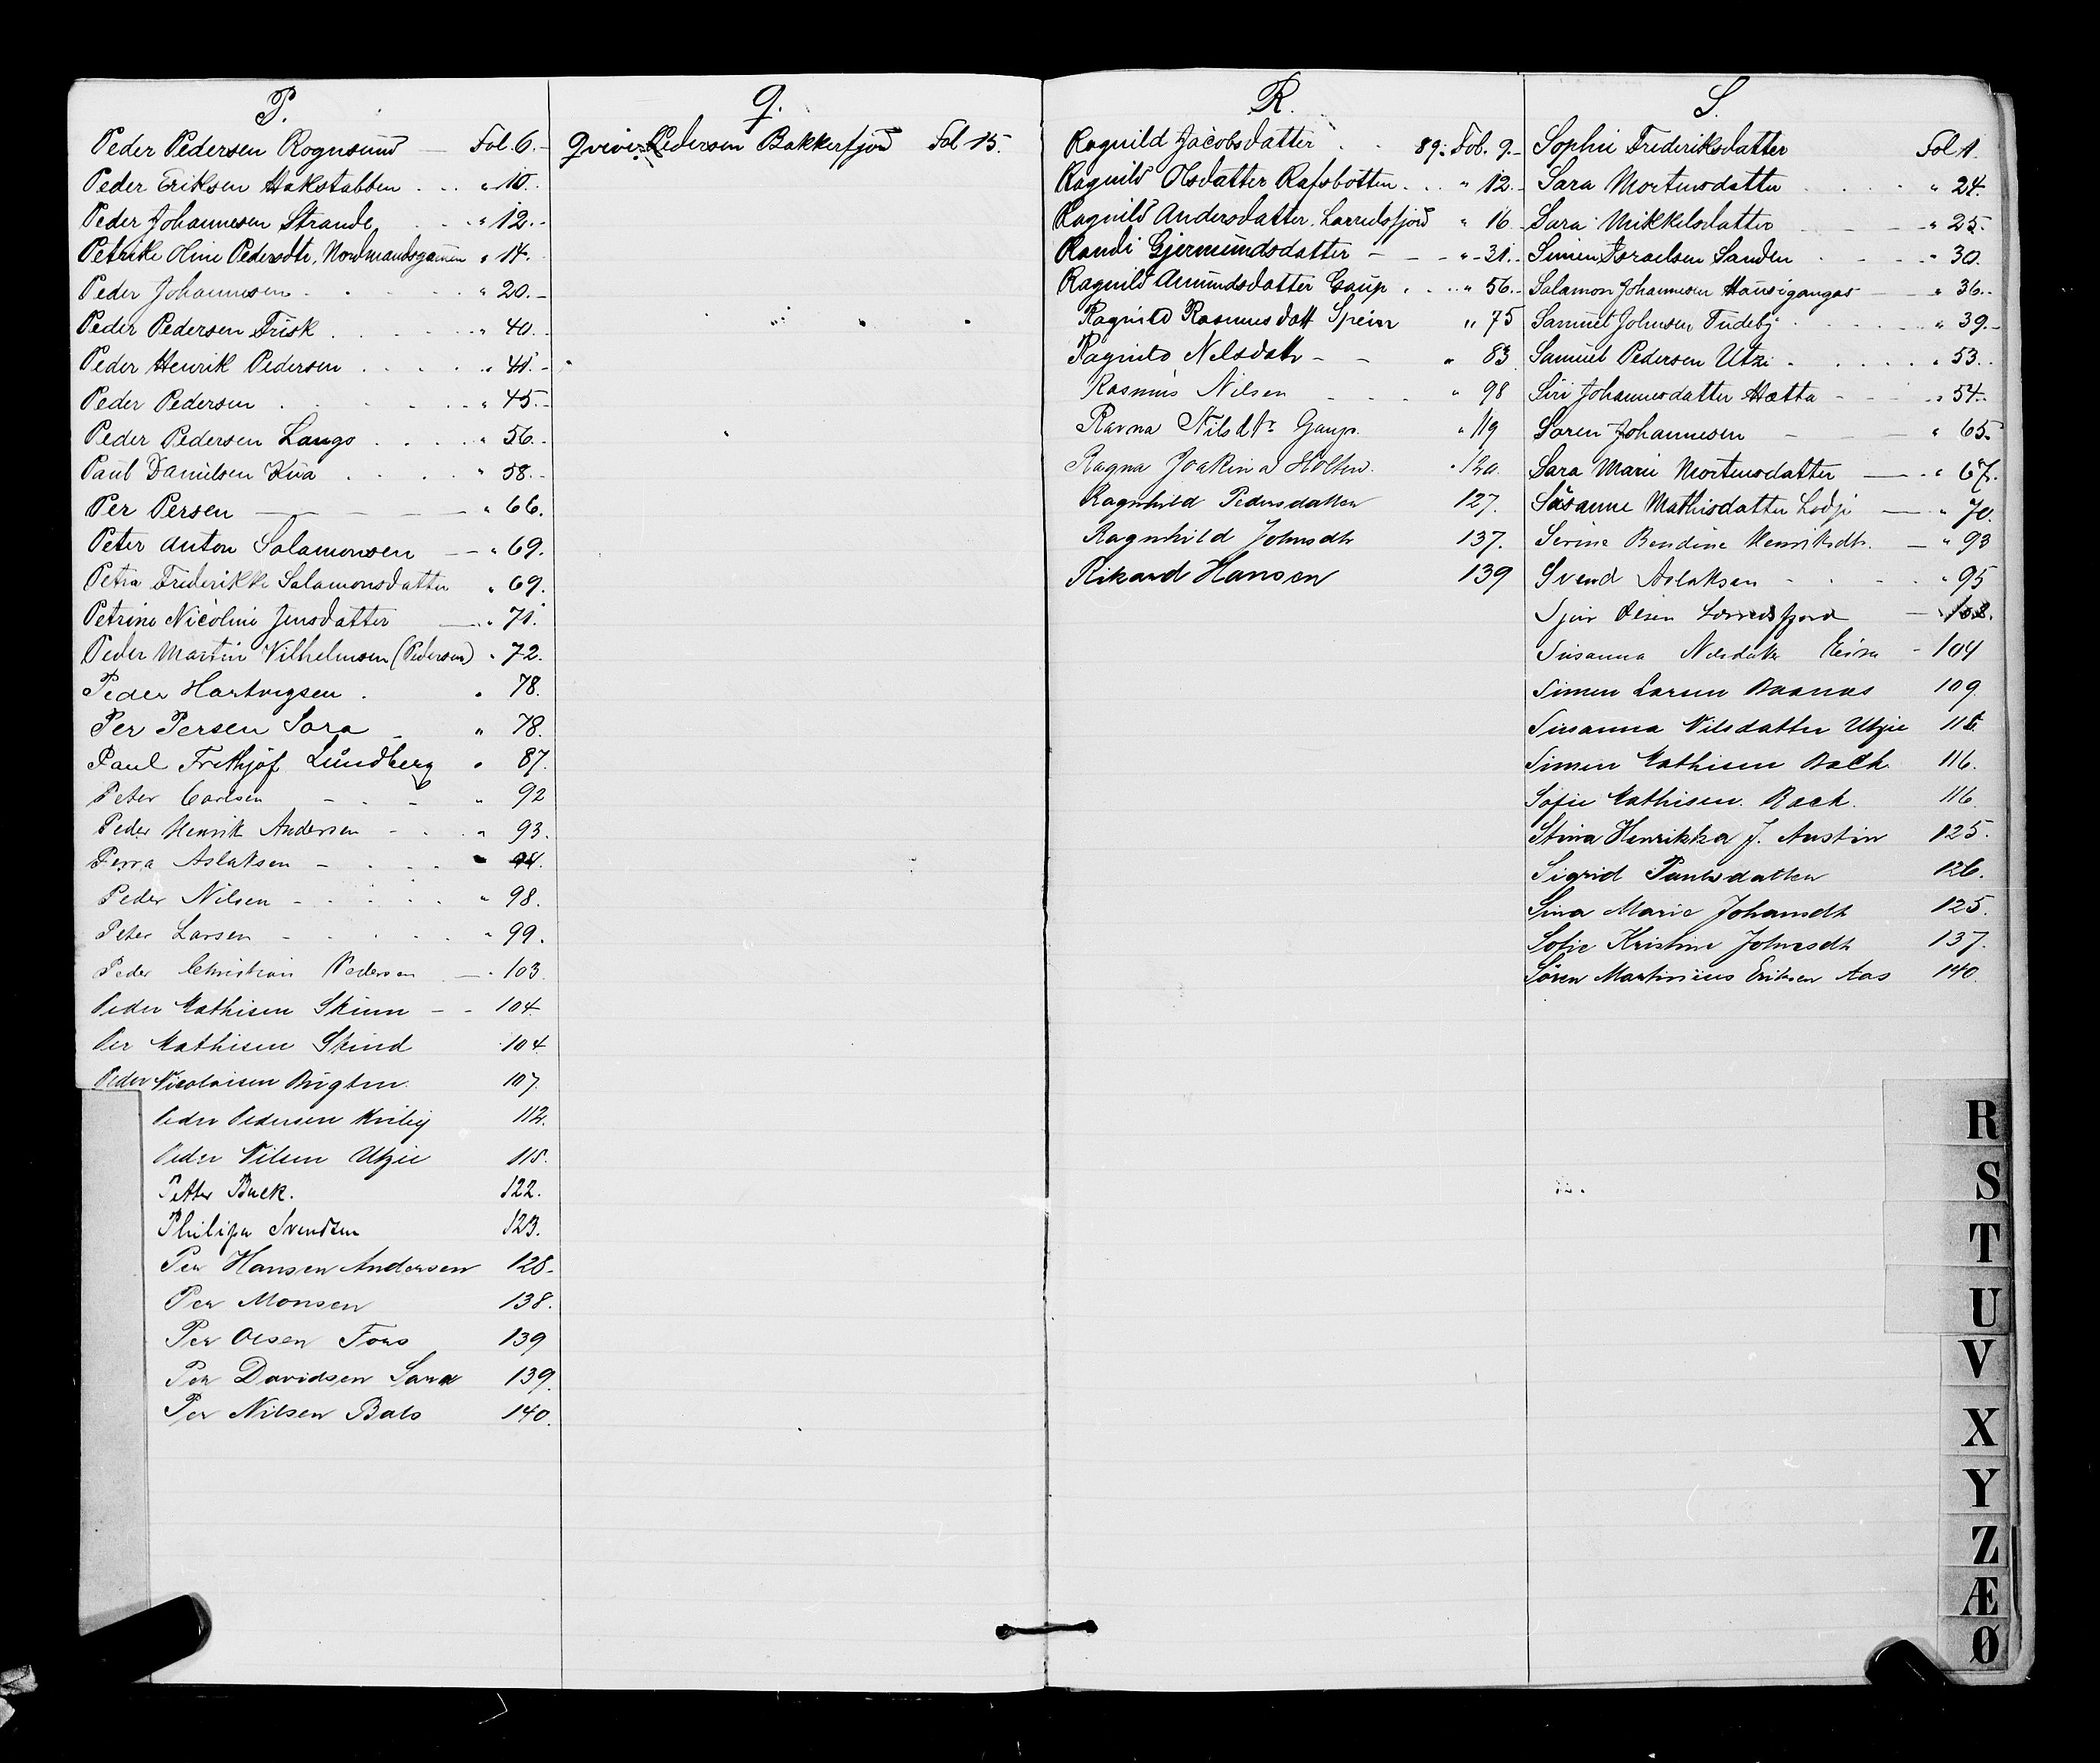 P.
Peder Pedersen Rognsund — Fol. 6.-
Peder Eriksen Hakstabben . . . " 10.
Peder Johannesen Strande . . " 12.-
Petrike Oline Pedersdtr. Nordmandsgamen " 14.
Peder Johannesen . . . . " 20.-
Peder Pedersen Frisk . . . . " 40.-
Peder Henrik Pedersen . . . . " 41.-
Peder Pedersen . . . . . " 45.-
Peder Pedersen Lango . . . . " 56.-
Paul Danielsen Kua . . . . " 58.-
Per Persen — — — — " 66.
Peter Anton Salamonsen — — " 69.
Petra Frederikke Salamonsdatter " 69.
Petrine Nicoline Jensdatter — " 71.
Peder Martin Vilhelmsen (Pedersen) " 72.
Peder Hartvigsen . " 78.
Per Persen Sara - " 78.
Paul Frithjof Lundberg " 87.
Peter Carlsen - . - " 92
Peder Henrik Andersen - . " 93.
Perra Aslaksen - . . . 94.
Peder Nilsen - . . . . " 98.
Peter Larsen - . . . . " 99.
Peder Christian Pedersen — " 103.
Peder Mathisen Skinn - - 104.
Per Mathisen Skind 104
Peder Nicolaisen 107.
Peder Pedersen 112.
Peder Nilsen Utzie 115.
Petter Buck. 122.
Philip Svendsen 123.
Per Hansen Andersen 128.
Per Monsen 138.
Per Olsen Fors 139
Per Davidsen Sara 139.
Per Nilsen Bals 140.
Q.
Qvive Pedersen Bakkerfjord Fol 15.
R.
Ragnild Jacobsdatter . . 89: Fol. 9.-
Ragnild Olsdatter Rafsbotten . . . " 12.-
Ragnild Andersdatter. Larredsfjord " 16.-
Randi Gjermundsdatter - - - " 31.-
Ragnild Amundsdatter Gaup . . . " 56.-
Ragnild Rasmusdatt Spein " 75
Ragnild Nilsdatt - - " 83
Rasmus Nilsen - - - " 98
Ravna Nilsdtr Gaup. " 119
Ragna Joakina Holten. " 120.
Ragnhild Pedersdatter 127.
Ragnhild Johnsdtr 137.
Rikard Hansen 139
S.
Sophie Frederiksdatter Fol 1.
Sara Mortensdatter . . . . " 24.
Sara Mikkelsdatter - - - - " 25.
Simen Israelsen Sanden . . . " 30.
Salamon Johannesen — " 36.-
Samuel Johnsen . . . . " 39.-
Samuel Pedersen Utzi . . . . " 53..
Siri Johannesdatter Hætta - - " 54.
Søren Johannesen — — " 65.
Sara Marie Mortensdatter — " 67.
Susanne Mathisdatter Lodje — " 70.
Serine Bendine Henriksdtr. — " 93
Svend Aslaksen - . . . " 95
Olsen Larredsfjord — " 102.
Susanna Nilsdatter Eira - 104
Simen Larsen 109.
Susanna Nilsdatter Utzie 115.
Simen Mathisen Bach 116.
Sofie Mathisen. Bach. 116.
Stina Henrikka J. Austin 125.
Sigrid Paulsdatter 126.
Sina Marie Johansdtr 125.
Sofie Kristine Johnsdtr 137.
Søren Martinius Eriksen Aas 140.
R
S
T
U
V
X
Y
Z
Æ
Ø